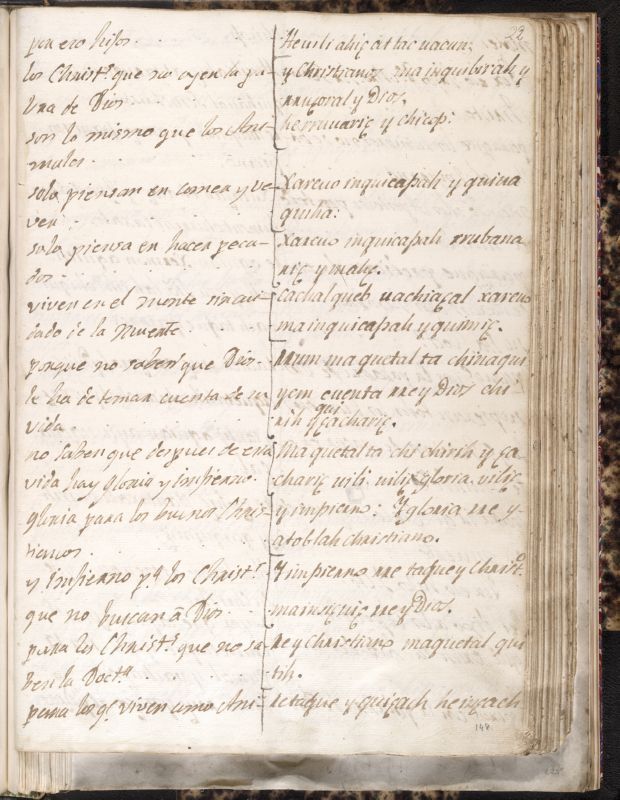 23
pon ero hijos.
los Christs. que no oyen la pa-
labra de Dios
son lo mismo que los Ani-
males.
solo piensan en comer y ve-
ver
solo piensa en hacer peca-
dos.
viven en el monte sin cui-
dado de la muerte
porque no saben que Dios.
le ha de tomar cuenta de su
vida
no saben que despues de esta
vida hay gloria y infierno.
gloria para los buenos Chris-
tianos.
y Infierno pa. los Christs.
que no buscan â Dios.
para los Christs. que no sa-
ben la Docta.
para los qe. viven como Ani-
y Christiano mainquibirah y
y Dios.
y chicop:
Xarcuo inquicapah y quina
quiha:
Xarcuo inquicapah rrubana
ric y mahc.
cachalqueb uachiacal xarcuo
mainquicapah y quimic.
mum maquetal ta chinaqui
y em cuenta rre y Dios chi-
rih qui cacharic.
Maquetal ta chi chirih y ca
charic uili uilic gloria uilic
y impierno: Y gloria rre y
atoblah christiano.
Y impierno rre taque y Christ.
mainsiquic rre y Dios.
rre y Christiano maquetal qui
tih.
retaque y quicach
148